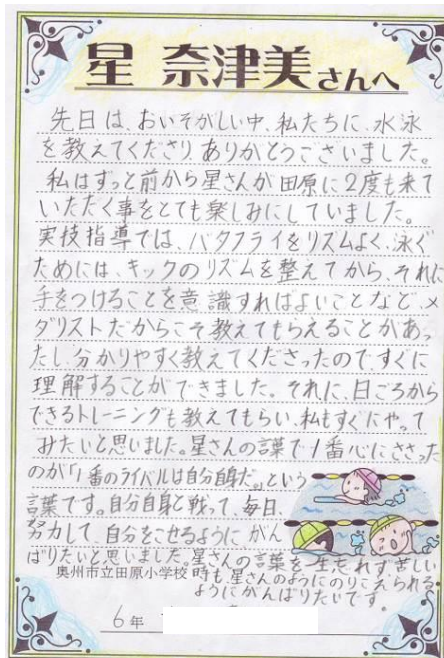 星 奈津美さんへ
先日は、おいそがしい中、私たちに、水泳
を教えてくださり、ありがとうございました。
私はずっと前から星さんが田原に2度も来て
いただく事をとても楽しみにしていました。
実技指導では、バタフライをリズムよく、泳ぐ
ためには、キックのリズムを整えてから、それに
手をつけることを意識すればよいことなど、メ
ダリストだからこそ教えてもらえることがあっ
たし、分かりやすく教えてくださったので、すぐに
理解することができました。それに、日ごろから
できるトレーニングも教えてもらい、私もすぐにやって
みたいと思いました。星さんの言葉で1番心にささった
のが「1番のライバルは自分自身だ。」という
言葉です。自分自身と戦って、毎日、
努力して、自分をこせるように がん
ばりたいと思いました。星さんの言葉を一生忘れず、苦しい
時も、星さんのようにのりこえられる
ようにがんばりたいです。
奥州市立田原小学校
6年